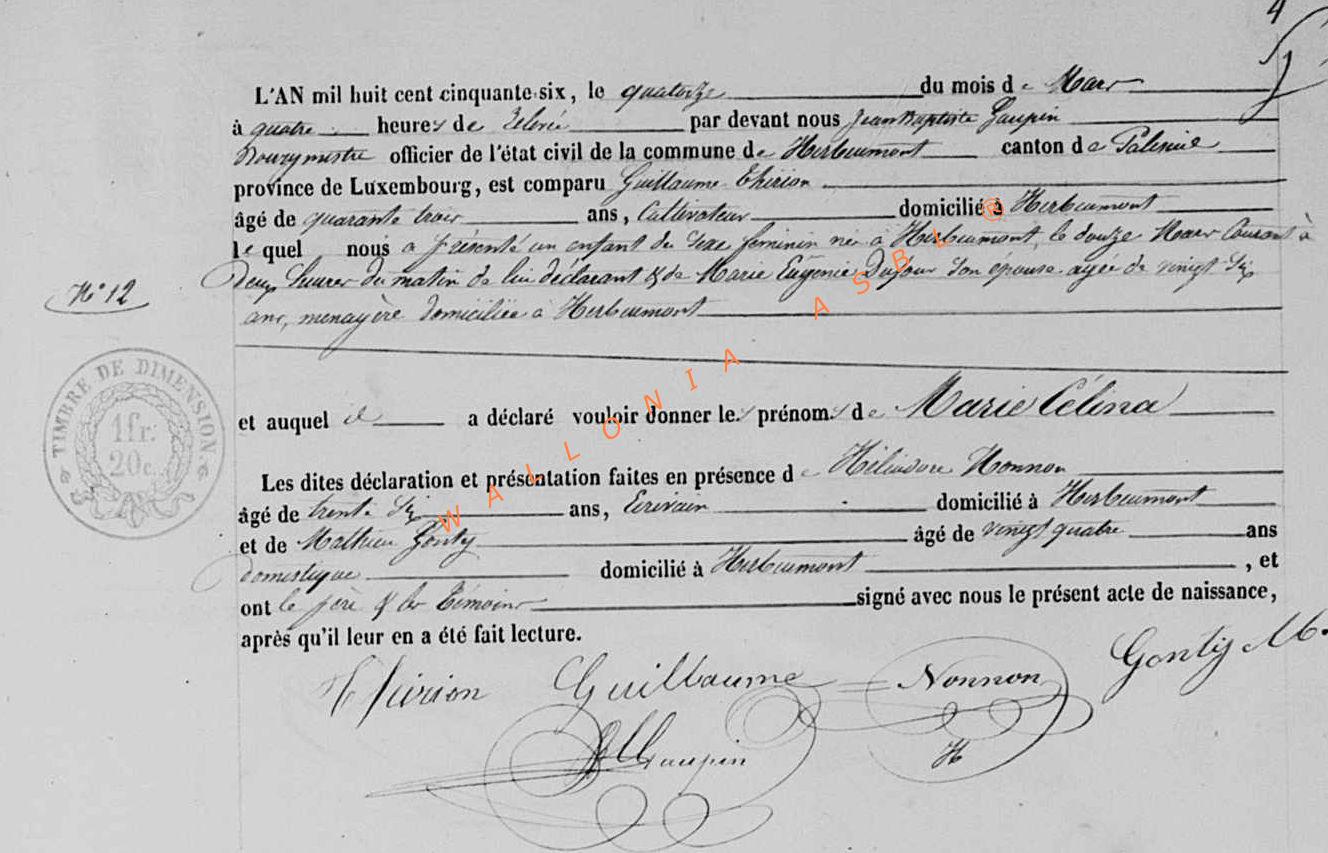 4
L'AN mil huit cent cinquante-six, le quatorze du mois de Mars
à quatre heures de relevée par devant nous Jean Baptiste Gaupin
Bourgmestre officier de l'état civil de la commune de Herbeumont canton de Paliseul
province de Luxembourg, est comparu Guillaume Thirion
âgé de quarante trois ans, Cultivateur domicilié à Herbeumont
le quel nous a présenté un enfant du sexe feminin née à Herbeumont le douze Mars Courant à
Deux heures du matin de lui déclarant & de Marie Eugénie Dufour Son épouse agée de vingt Six
ans, menagère domiciliée à Herbeumont
N° 12
TIMBRE DE DIMENSION
1 fr.
20 c.
et auquel il a déclaré vouloir donner les prénoms de Marie Célina
Les dites déclaration et présentation faites en présence de Héliodore Nonnon
âgé de trente Six ans, Ecrivain domicilié à Herbeumont
et de Mathieu Gonty âgé de vingt quatre ans
domestique domicilié à Herbeumont , et
ont le père & les témoins signé avec nous le présent acte de naissance,
après qu'il leur en a été fait lecture.
Thirion Guillaume Nonnon Gonty M.
H
Gaupin
WALLONIA ASBL ®